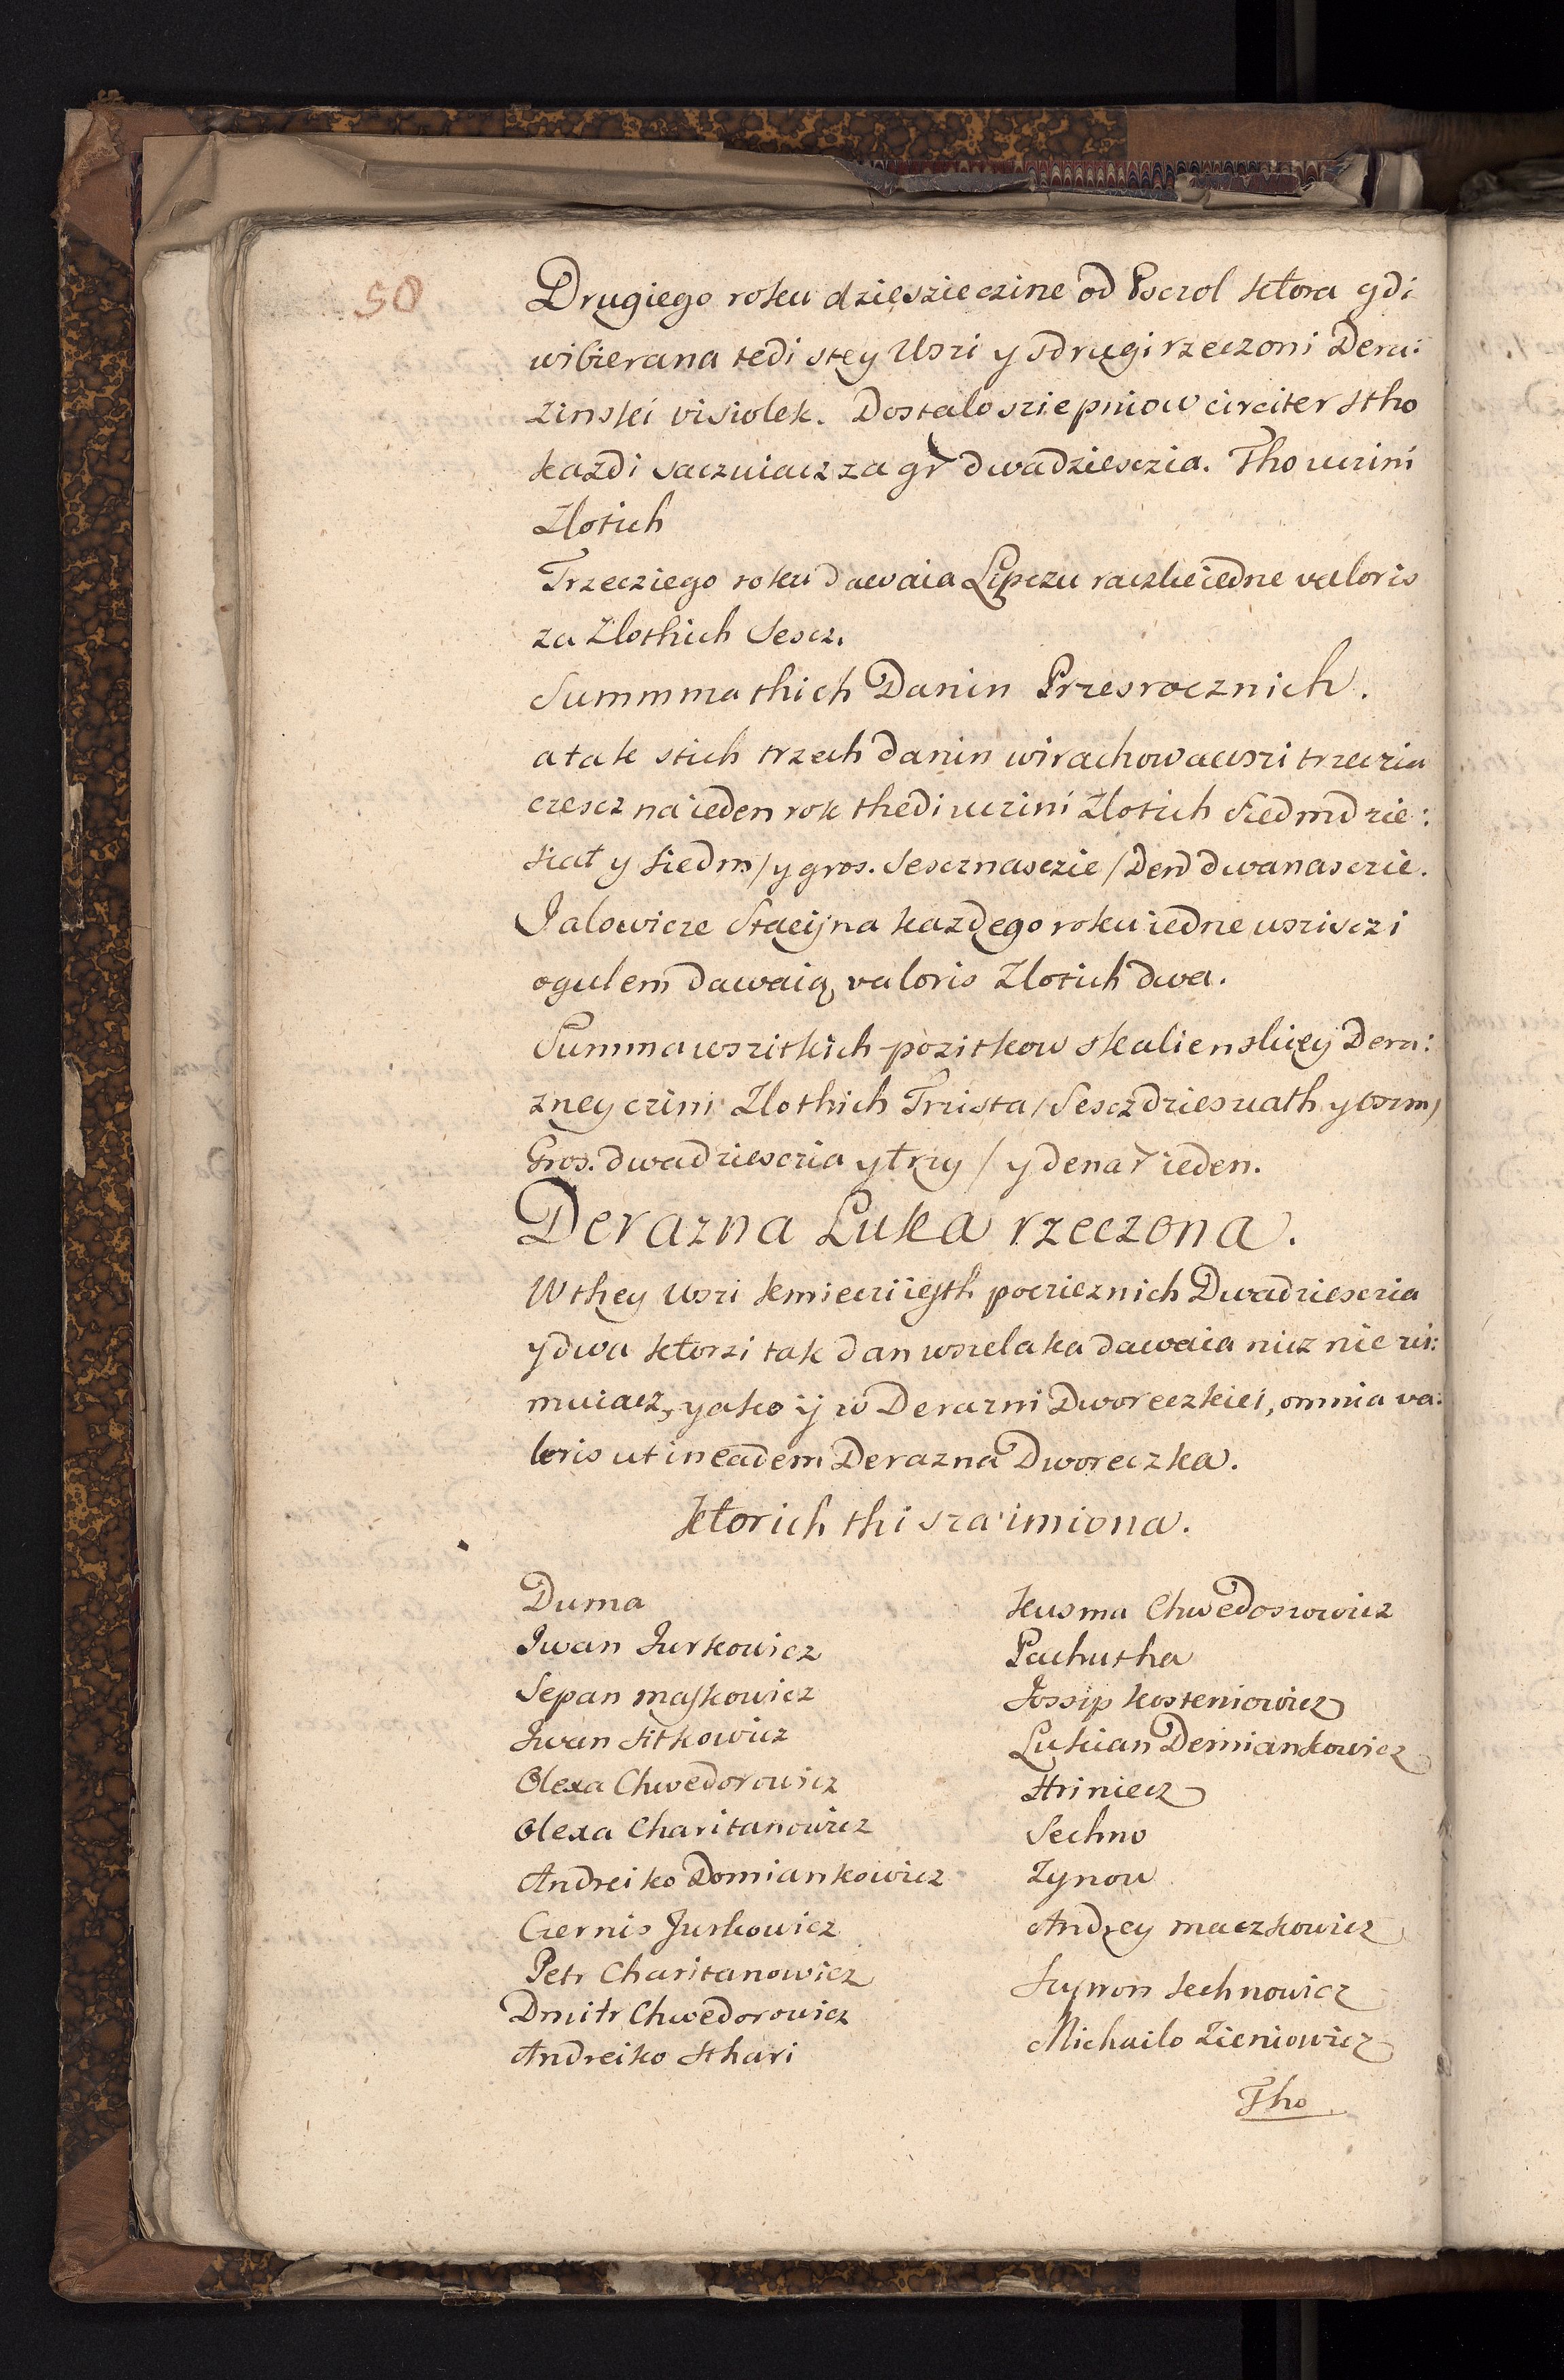 50
Drugiego roku dzieszieczine od Psczol ktora gdi
wibierana tedi stey Wszi y sdrugi rzeczoni Dera:
zinskei visiolek. Dostalo szie pniow circiter stho
kazdi saczuiacz za gr dwadziesczia. Tho uczini
Zlotich
Trzecziego roku dawaia Lipczu raczke iedne valoris
za Zlothich Sescz.
Summma thich Danin Przesrocznich.
a tak stich trzech danin wirachowawszi trzeczia
czescz na ieden rok thedi uczini Zlotich siedmdzie:
siat y siedm / y gros. Sescznasczie / Den dwanasczie.
Jalowicze Staczijna kazdego roku iedne wszisczi
ogulem dawaią valoris Zlotich dwa.
Summa wszitkich pozitkow skalienskiey Dera:
zney czini Zlothich Trzista / Sesczdziesiath y osm /
Gros. dwadziesczia y trzy / y denar ieden.
Derazna Luka rzeczona.
W they Wszi kmieczi iesth poczieznich Dwadziesczia
y dwa ktorzi tak dan wszelaka dawaia nicz nie ui:
muiacz, yako ij w Derazni Dworeczkiei, omnia va:
loris ut in eadem Derazna Dworeczka.
Ktorich thi sza imiona.
Duma
Iwan Jurkowicz
Sepan maskowicz
Iwan Sitkowicz
Olexa Chwedorowicz
Olexa Charitanowicz
Andreiko Domiankowicz
Czernis Jurkowicz
Petr Charitanowicz
Dmitr Chwedorowicz
Andreiko Sthari
Kusma Chwedosowicz
Pachutha
Jossip kosteniowicz
Lukian Demiankowicz
Hriniecz
Sechno
Zynow
Andrzey maczkowicz
Sechnowicz
Michailo Zieniowicz
Tho